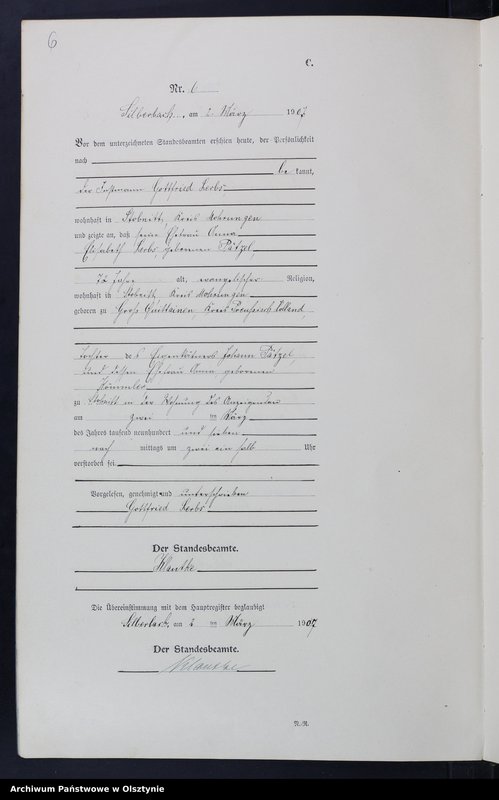 6
C.
Nr. 6
Silberbach, am 2. März 1907
Vor dem unterzeichneten Standesbeamten erschien heute, der Persönlichkeit
nach
be kannt,
der Instmann Gottfried Kerbs
wohnhaft in Stobnitt, Kreis Mohrungen
und zeigte an, daß seine Ehefrau Anna
Elisabeth Kerbs, geborenen Pätzel,
72 Jahre alt, evangelischer Religion,
wohnhaft in Stobnitt, Kreis Mohrungen
geboren zu Groß Quittainen, Kreis Preußisch Holland
Tochter des Eigenkätners Johann Pätzel
und dessen Ehefrau Anna geborenen
zu Stobnitt in der Wohnung des Anzeigenden
am zwei im März
des Jahres tausend neunhundert und sieben
nach mittags um zwei ein halb Uhr
verstorben sei.
Vorgelesen, genehmigt und unterschrieben
Gottfried Kerbs
Der Standesbeamte.
Klautke
Die Übereinstimmung mit dem Hauptregister beglaubigt
Silberbach, am 2 im März 1907
Der Standesbeamte.
Klautke
N.-R.
Archiwum Państwowe w Olsztynie